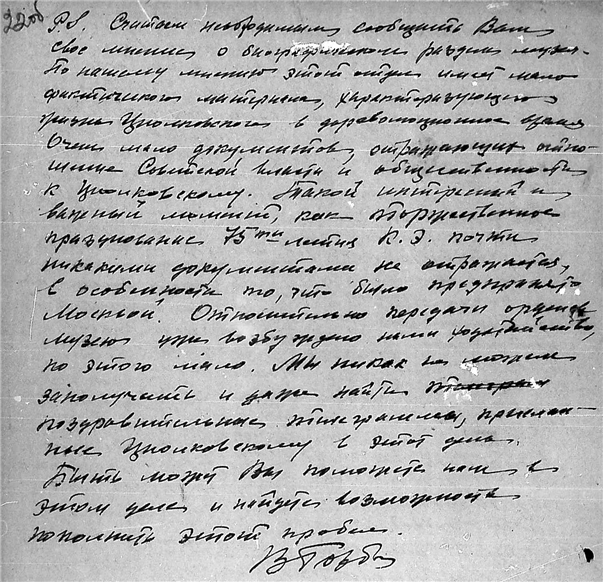 22об
P.S. Считаем необходимым сообщить Вам
свое мнение о биографическом разделе музея.
По нашему мнению этот отдел имеет мало
фактического материала, характеризующего
жизнь Циолковского в дореволюционное время
Очень мало документов, отражающих отно-
шение Советской власти и общественности
к Циолковскому. Такой интересный и
важный момент, как торжественное
празднование 75ти летия К.Э. почти
никакими документами не отражается,
в особенности то, что было предпринято
Москвой. Относительно передачи ордена
музею уже возбуждено нами ходатайство,
но этого мало. Мы никак не можем
заполучить и даже найти
поздравительные телеграммы, прислан-
ные Циолковскому в этот день.
Быть может Вы поможете нам в
этом деле и найдется возможность
пополнить этот пробел.